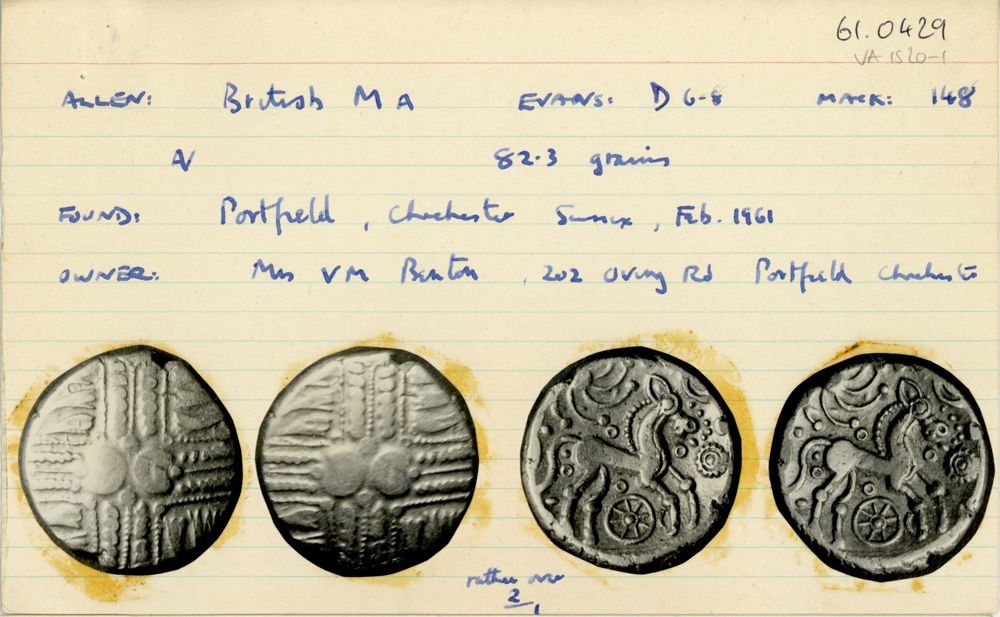 61.0429
VA 1520-1
ALLEN: British M A EVANS: D 6-8 MACK: 148
AV 82.3 grains
FOUND: Portfield, Chichester Sussex, Feb. 1961
OWNER: Mrs V M Benton, 202 Oving Rd Portfield Chichester
rather over
2/1